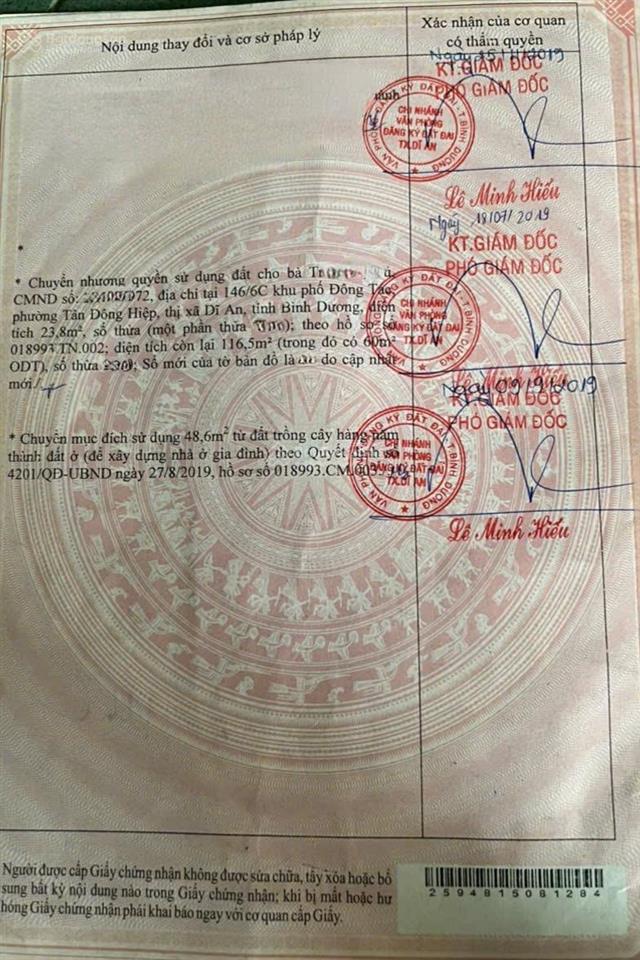 Nội dung thay đổi và cơ sở pháp lý
Xác nhận của cơ quan
có thẩm quyền
KT.GIÁM ĐỐC
PHÓ GIÁM ĐỐC
VĂN PHÒNG ĐĂNG KÝ ĐẤT ĐAI - T.BÌNH DƯƠNG
CHI NHÁNH
VĂN PHÒNG
ĐĂNG KÝ ĐẤT ĐAI
TX.DĨ AN
Lê Minh Hiếu
Ngày 18/07/2019
KT.GIÁM ĐỐC
PHÓ GIÁM ĐỐC
* Chuyển nhượng quyền sử dụng đất cho bà
CMND số: địa chỉ tại 146/6C khu phố Đông Tác,
phường Tân Đông Hiệp, thị xã Dĩ An, tỉnh Bình Dương, diện
tích 23,8m², số thửa (một phần thửa ); theo hồ sơ số
018993.TN.002; diện tích còn lại 116,5m² (trong đó có 60m²
ODT), số thửa Số mới của tờ bản đồ là do cập nhật
mới./
CHI NHÁNH
VĂN PHÒNG
ĐĂNG KÝ ĐẤT ĐAI
TX.DĨ AN
Lê Minh Hiếu
KT.GIÁM ĐỐC
PHÓ GIÁM ĐỐC
* Chuyển mục đích sử dụng 48,6m² từ đất trồng cây hàng năm
thành đất ở (để xây dựng nhà ở gia đình) theo Quyết định số
4201/QĐ-UBND ngày 27/8/2019, hồ sơ số 018993.CM.003
VĂN PHÒNG ĐĂNG KÝ ĐẤT ĐAI T.BÌNH DƯƠNG
CHI NHÁNH
VĂN PHÒNG
ĐĂNG KÝ ĐẤT ĐAI
TX.DĨ AN
Lê Minh Hiếu
Người được cấp Giấy chứng nhận không được sửa chữa, tẩy xóa hoặc bổ
sung bất kỳ nội dung nào trong Giấy chứng nhận; khi bị mất hoặc hư
hỏng Giấy chứng nhận phải khai báo ngay với cơ quan cấp Giấy.
2594815081284